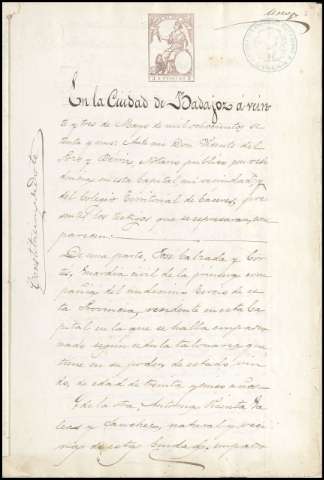 En la Ciudad de Badajoz a vein
te y tres de Mayo de mil ochocientos se
tenta y nueve: Ante mi Don Vicente de
y Notario publico
en esta Capital mi vecindad, y
del Colegio Territorial de Caceres, pre
sentes los testigos que se expresaran, com
parecen
De una parte, Jose Calzada y Cor
tes, Guardia civil de la primera com
pañia del undecimo Tercio de es
ta Provincia, residente en esta Ca
pital en la que se halla empadro
nado segun cedula talonaria que
tiene en su poder, de estado viu
do, de edad de treinta y años
Y de la otra, Antonia
y Sanchez, natural y ve
cina de esta Ciudad,
Constitucion de dote